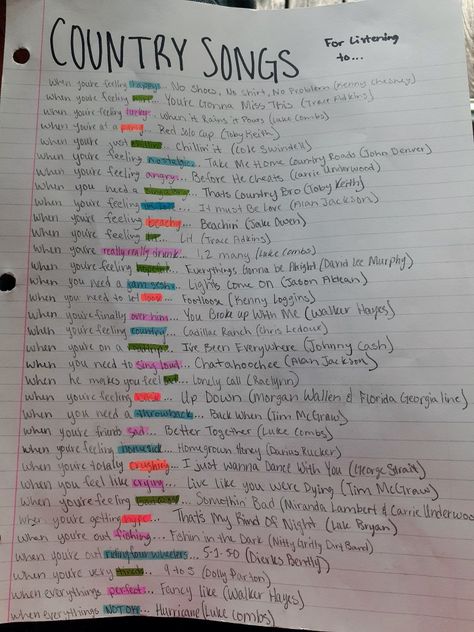 COUNTRY SONGS
For Listening to...
when you're feeling happy... No Shoes, No Shirt, No Problem (Kenny Chesney)
when you're feeling ... You're Gonna Miss This (Trace Adkins)
when you're feeling lucky... When it Rains it Pours (Luke Combs)
when you're at a party... Red Solo Cup (Toby Keith)
when you're just chillin... Chillin' it (Cole Swindell)
when you're feeling nostalgic... Take Me Home Country Roads (John Denver)
when you're feeling angry... Before He Cheats (Carrie Underwood)
when you need a ... Thats Country Bro (Toby Keith)
when you're feeling in love... It Must Be Love (Alan Jackson)
when you're feeling beachy... Beachin' (Jake Owen)
when you're feeling lit... Lit (Trace Adkins)
when you're really really drunk... 1, 2 many (Luke Combs)
when you're feeling hopeful... Everythings Gonna be Alright (David Lee Murphy)
when you need a jam sesh... Lights Come On (Jason Aldean)
when you need to let loose... Footloose (Kenny Loggins)
when you're finally over him... You Broke up With Me (Walker Hayes)
when you're feeling country... Cadillac Ranch (Chris Ledoux)
when you're on a roadtrip... I've Been Everywhere (Johnny Cash)
when you need to sing loud... Chatahoochee (Alan Jackson)
when he makes you feel ... Lonely Call (Raelynn)
when you're feeling ... Up Down (Morgan Wallen & Florida Georgia line)
when you need a throwback... Back When (Tim McGraw)
when you're friends sad... Better Together (Luke Combs)
when you're feeling homesick... Homegrown Honey (Darius Rucker)
when you're totally crushing... I just wanna Dance With You (George Strait)
when you feel like crying... Live like you were Dying (Tim McGraw)
when you're feeling ... Somethin Bad (Miranda Lambert & Carrie Underwood
when you're getting hype... That's My Kind Of Night (Luke Bryan)
when you're out fishing... Fishin in the Dark (Nitty Gritty Dirt Band)
when you're out riding four wheelers... 5-1-50 (Dierks Bently)
when you're very tired... 9 to 5 (Dolly Parton)
when everythings perfect... Fancy like (Walker Hayes)
when everythings NOT OK... Hurricane (Luke Combs)